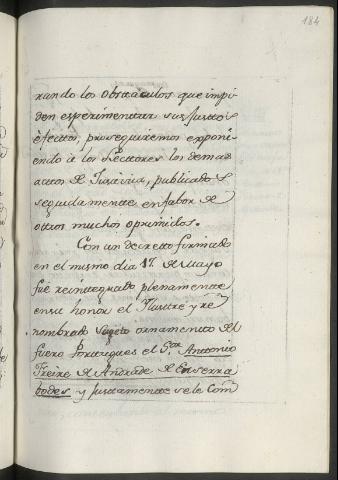 184
rando los obstaculos que impi-
den esperimentar sus justos
efectos, proseguiremos exponi-
endo à los Lectores los demas
autos de Justicia, publicados
seguidamente en fabor de
otros muchos oprimidos.
Con un decreto firmado
en el mismo dia 17. de Mayo
fué reintegrado plenamente
en su honor el Ilustre y re-
nombrado Sugeto ornamento del
fuero Portugues el Sor. Antonio
Freire de Andrade de Enserra
bodes y justamente se le Com